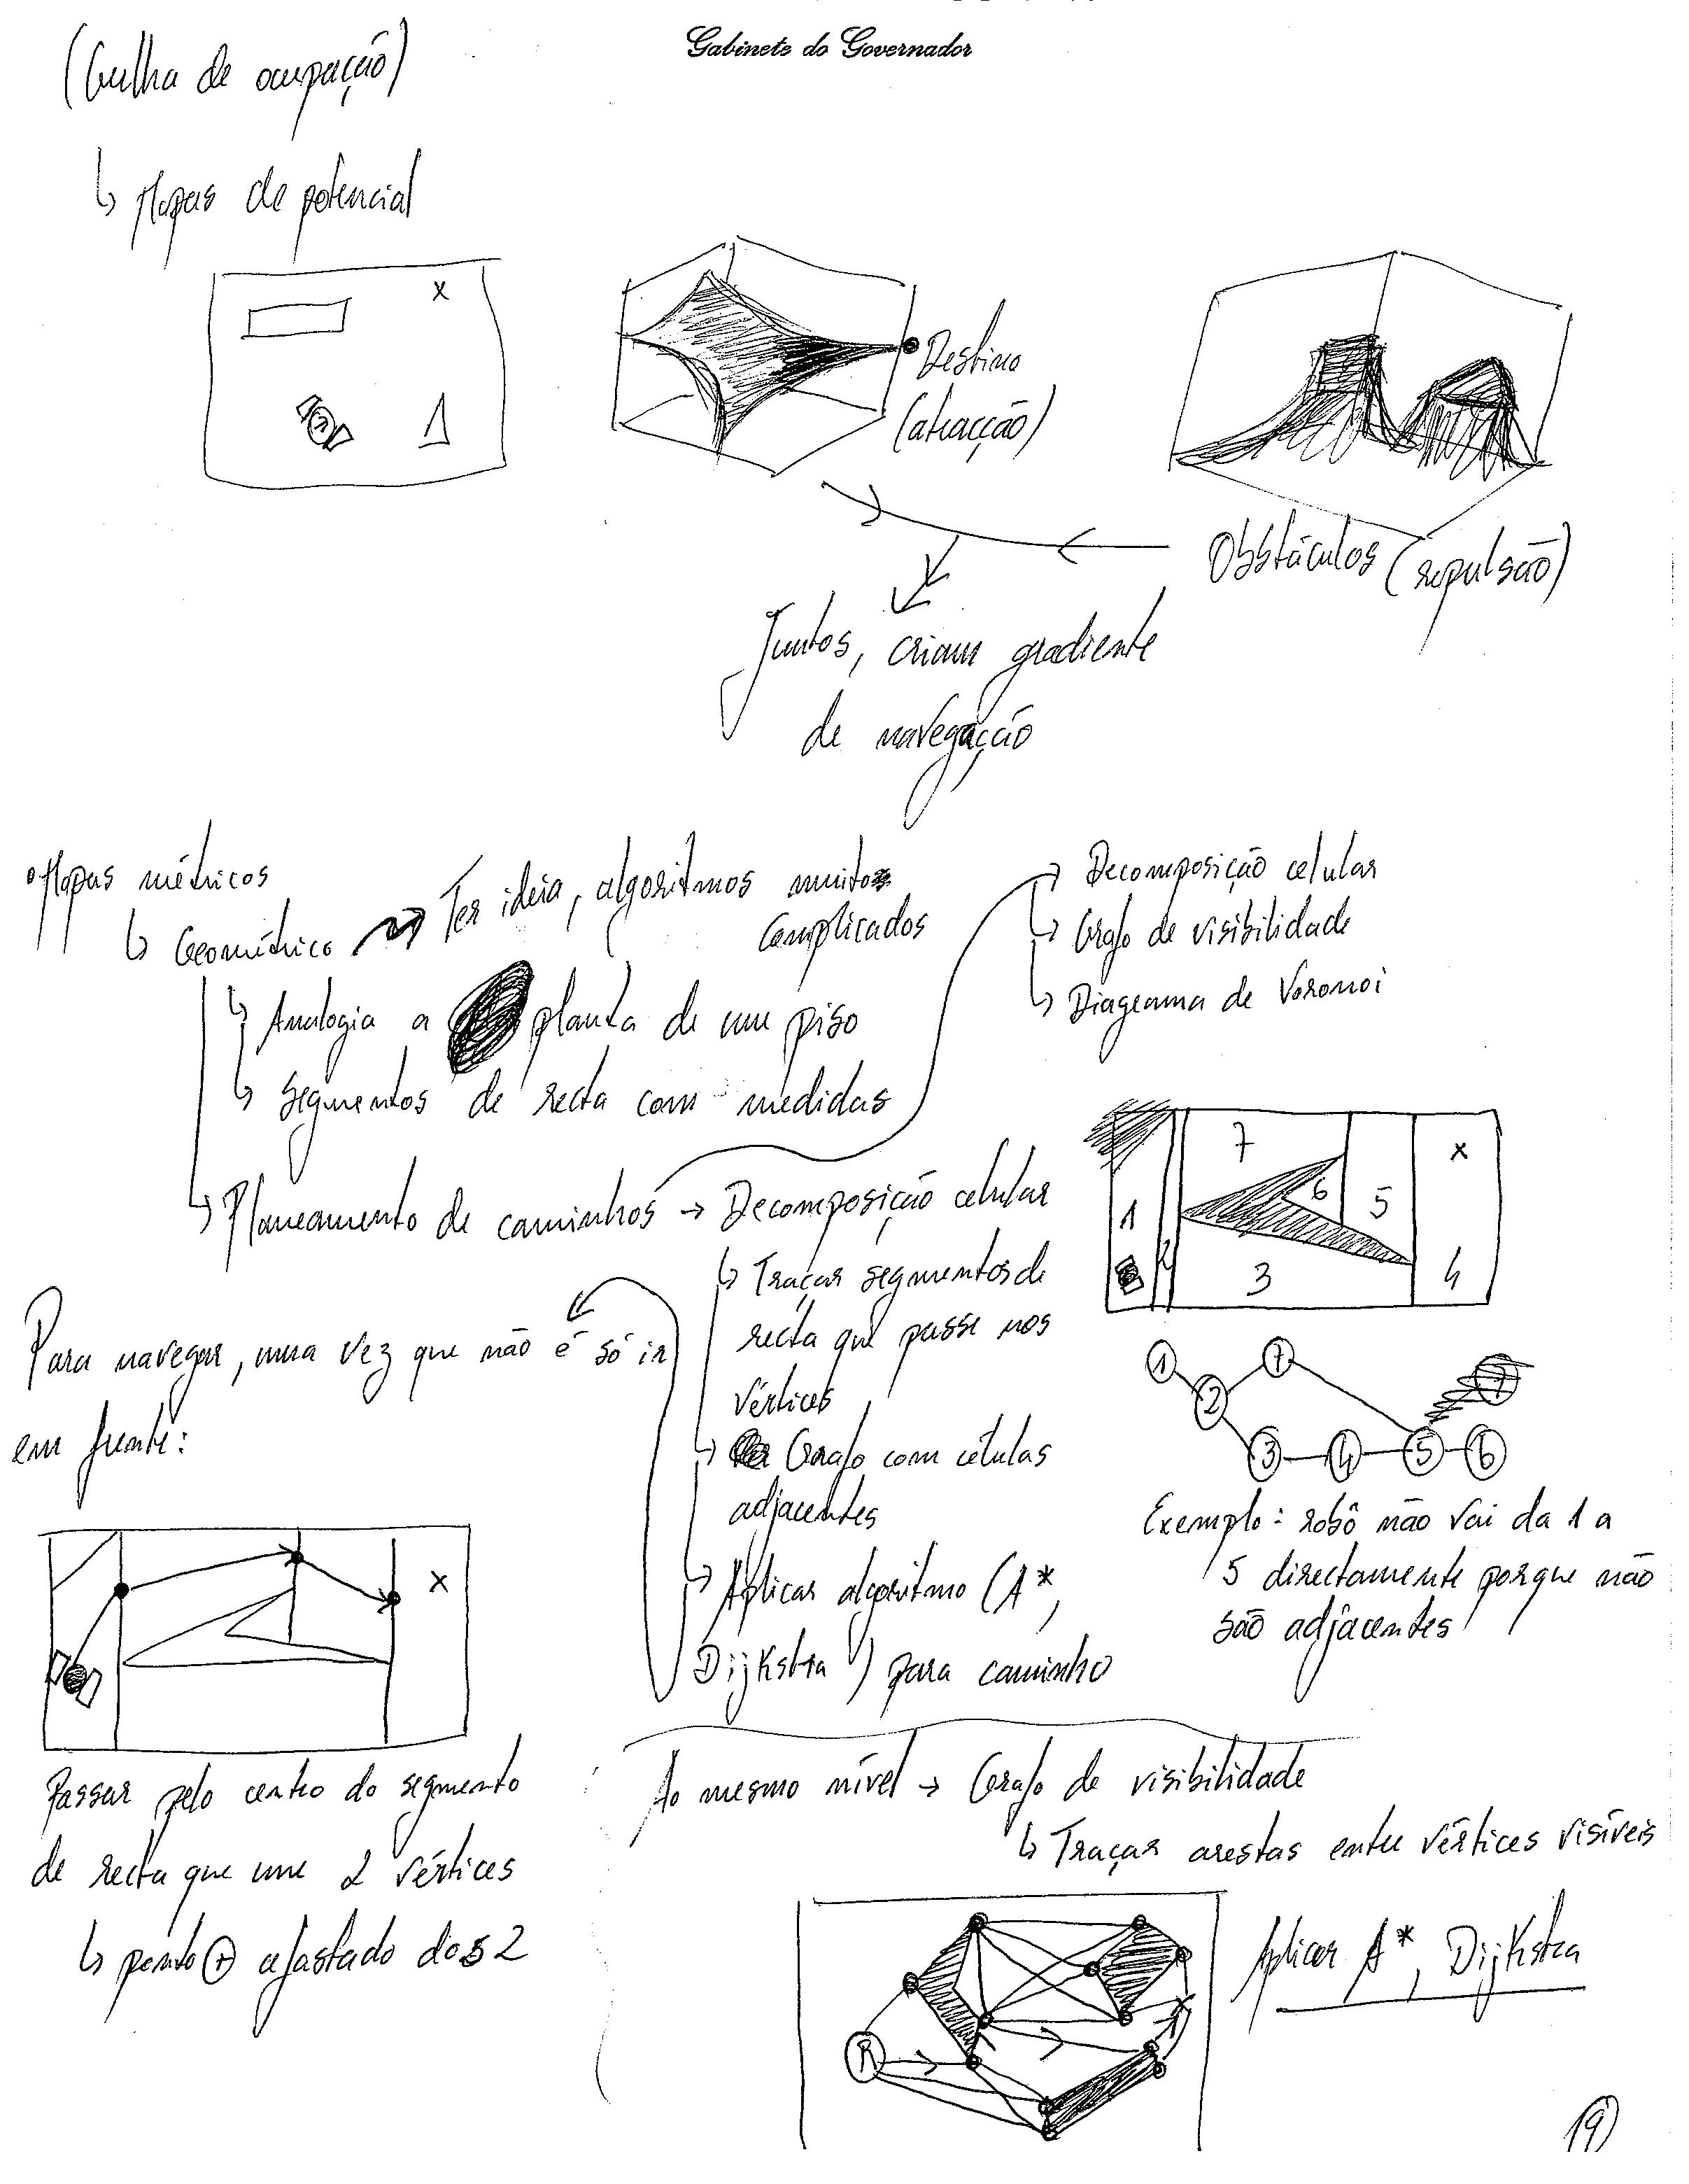 Gabinete do Governador
(Grelha de ocupação)
↳ Mapas de potencial
x
1
Destino
(atracção)
Obstáculos (repulsão)
Juntos, criam gradiente
de navegação
• Mapas métricos
↳ Geométrico → Ter ideia, algoritmos muito
complicados
↳ Analogia a planta de um piso
↳ Segmentos de recta com medidas
↳ Planeamento de caminhos → Decomposição celular
↳ Decomposição celular
↳ Grafo de visibilidade
↳ Diagrama de Voronoi
↳ Traçar segmentos de
recta que passe nos
vértices
↳ Grafo com células
adjacentes
↳ Aplicar algoritmo (A*,
Dijkstra) para caminho
7
x
6
5
1
2
3
4
1 7
2
3 4 5 6
Exemplo: robô não vai da 1 a
5 directamente porque não
são adjacentes
Para navegar, uma vez que não é só ir
em frente:
x
Passar pelo centro do segmento
de recta que une 2 vértices
↳ ponto + afastado dos 2
Ao mesmo nível → Grafo de visibilidade
↳ Traçar arestas entre vértices visíveis
R
x
Aplicar A*, Dijkstra
19